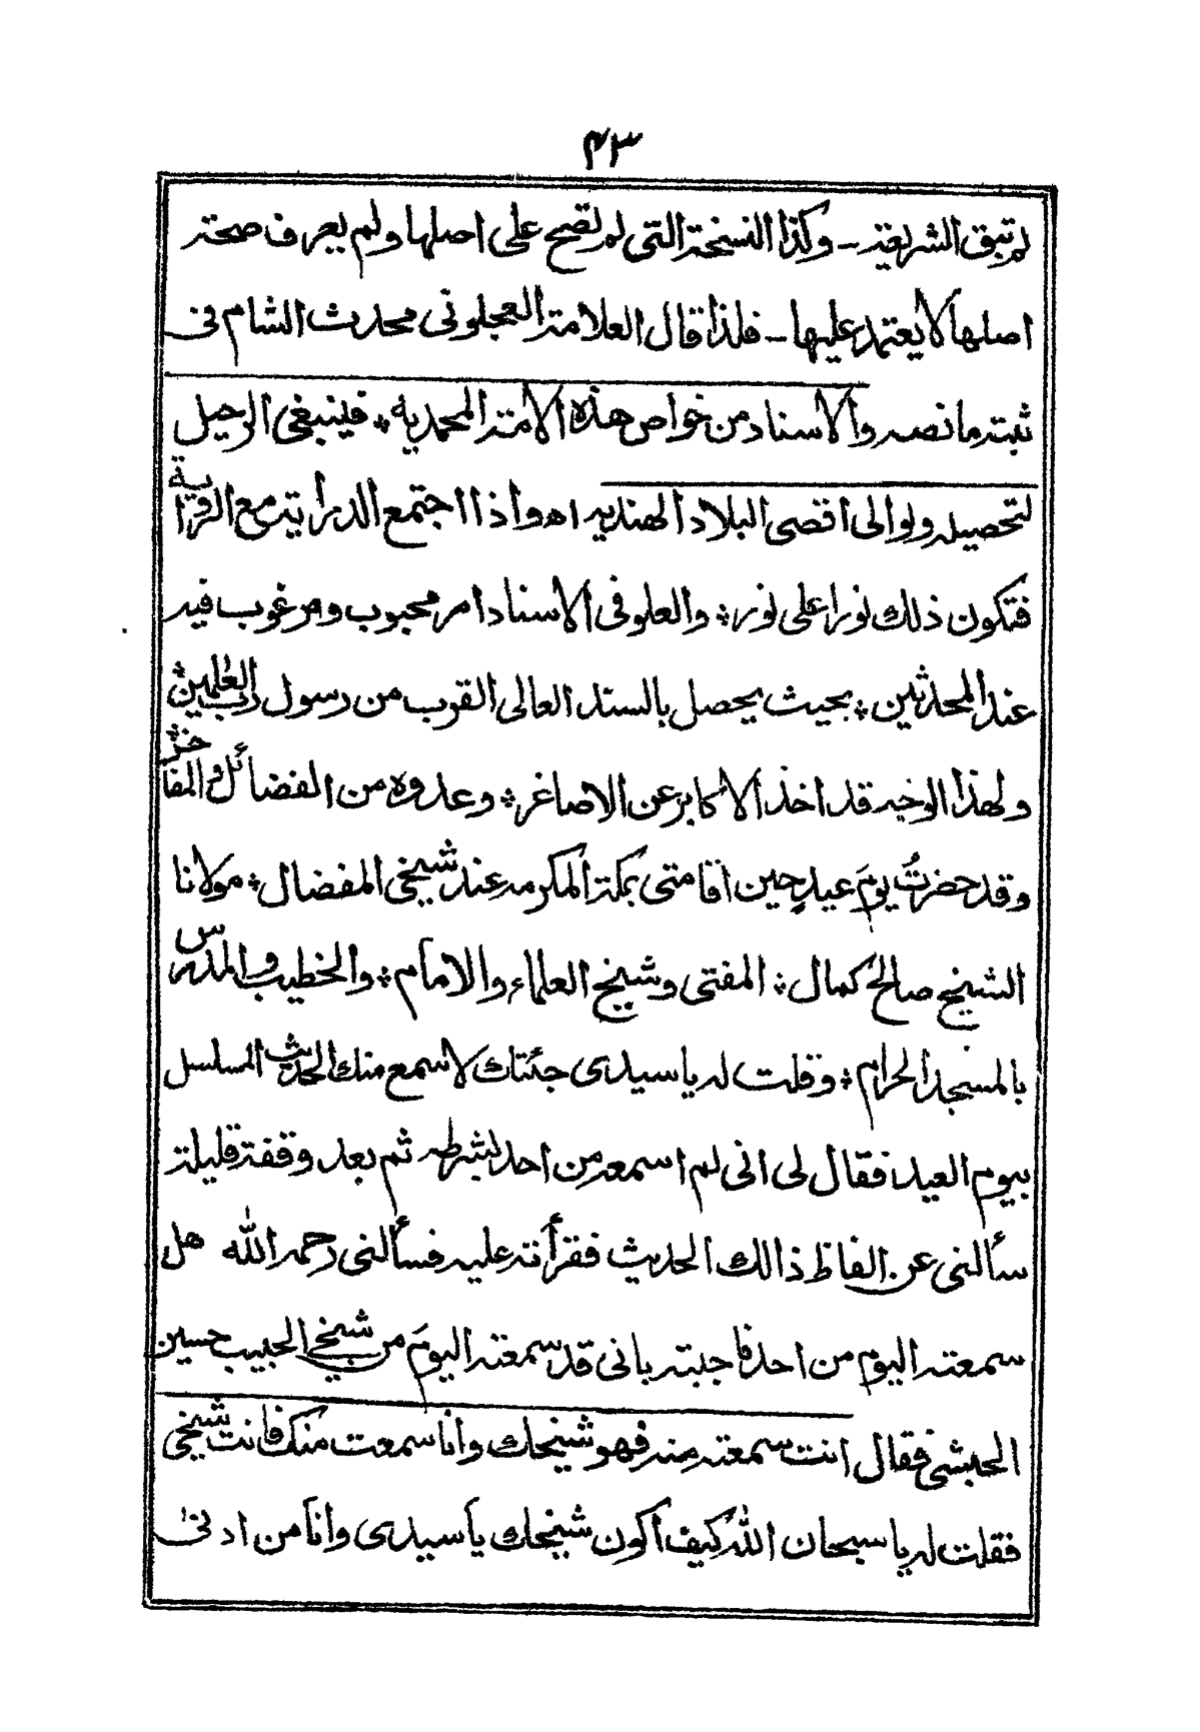 ۴۳
لم تبق الشريعة ـ وكذا النسخة التى لم تصح على اصلها ولم يعرف صحة
اصلها لا يعتمد عليها ـ فلذا قال العلامة العجلونى محدث الشام فى
ثبته ما نصه والاسناد من خواص هذه الامة المحمديه ؞ فينبغى الرحيل
لتحصيله ولو الى اقصى البلاد الهنديه اه واذا اجتمع الدراية مع الرواية
فتكون ذلك نورا على نور ؞ والعلو فى الاسناد امر محبوب ومرغوب فيه
عند المحدثين ؞ بحيث يحصل بالسند العالى القرب من رسول رب العٰلمين ؞
ولهذا الوجه قد اخذ الاكابر عن الاصاغر ؞ وعدوه من الفضائل والمفاخر ؞
وقد حضرتُ يومَ عيدٍ حين اقامتى بمكة المكرمه عند شيخى المفضال ؞ مولانا
الشيخ صالح كمال ؞ المفتى وشيخ العلماء والامام ؞ والخطيب والمدرس
بالمسجد الحرام ؞ وقلت له يا سيدى جئتك لاسمع منك الحديث المسلسل
بيوم العيد فقال لى انى لم اسمعه من احد بشرطه ثم بعد وقفة قليلة
سألنى عن الفاظ ذالك الحديث فقرأته عليه فسألنى رحمه الله هل
سمعته اليوم من احد فاجبته بانى قد سمعته اليومَ من شيخي الحبيب حسين
الحبشى فقال انت سمعته منه فهو شيخك وانا سمعت منك فانت شيخي
فقلت له يا سبحان الله كيف اكون شيخك يا سيدى وانا من ادنىٰ